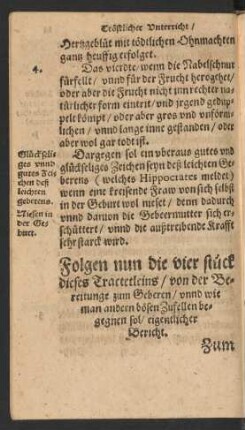 Tröstlicher Vnterricht /
Hertzgeblüt mit tödtlichen Ohnmachten
gantz heuffig erfolget.
4.
Das vierdte / wenn die Nabelschnur
fürfellt / vnnd für der Frucht hergehet /
oder aber die Frucht nicht inn rechter na-
türlicher form eintrit / vnd jrgend gedup-
pelt kömpt / oder aber gros vnd vnförm-
lichen / vnnd lange inne gestanden / oder
aber wol gar todt ist.
Glückseli-
ges vnnd
gutes Zei-
chen deß
leichten
geberens.
Niesen in
der Ge-
burt.
Dargegen sol ein vberaus gutes vnd
glückseliges Zeichen seyn deß leichten Ge-
berens ( welches Hippocrates meldet )
wenn eine kreisende Fraw von sich selbst
in der Geburt wol nieset / denn dadurch
vnnd darvon die Gebeermutter sich er-
schüttert / vnnd die außtreibende Krafft
sehr starck wird.
Folgen nun die vier stück
dieses Tractetleins / von der Be-
reitunge zum Geberen / vnnd wie
man andern bösen Zufellen be-
gegnen sol / eigentlicher
Bericht.
Zum